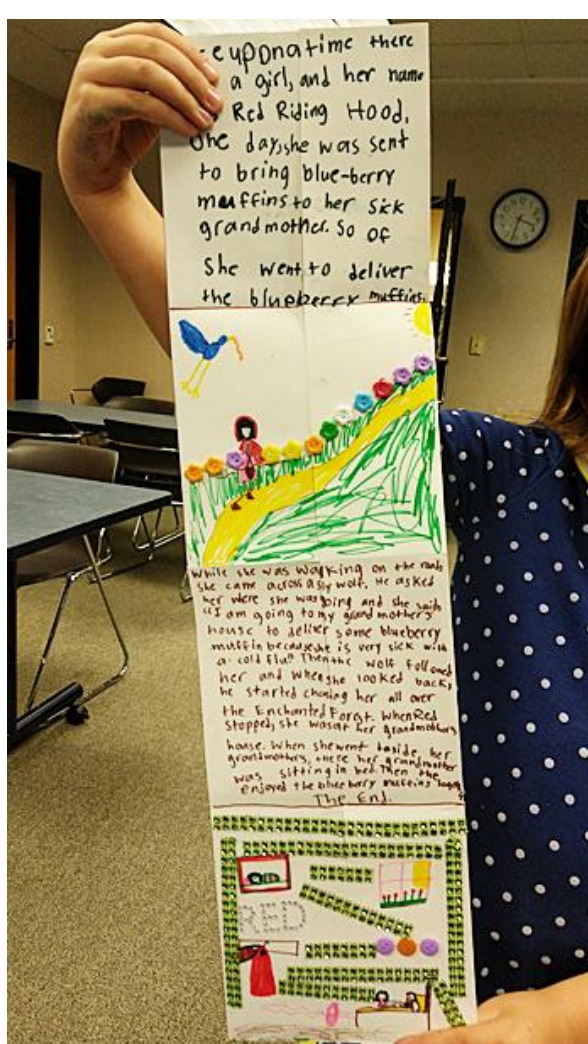 e upon a time there
a girl, and her name
Red Riding Hood,
One day, she was sent
to bring blue-berry
muffins to her sick
grandmother. So of
She went to deliver
the blueberry muffins.
While she was walking on the road
she came across a sly wolf. He asked
her where she was going and she said,
"I am going to my grandmother's
house to deliver some blueberry
muffin because she is very sick with
a cold flu." Then the wolf followed
her and when she looked back,
he started chasing her all over
the Enchanted Forest. When Red
stopped, she was at her grandmothers
house. When she went inside, her
grandmothers, there her grandmother
was sitting in bed. Then the
enjoyed the blueberry muffins
The End.
RED